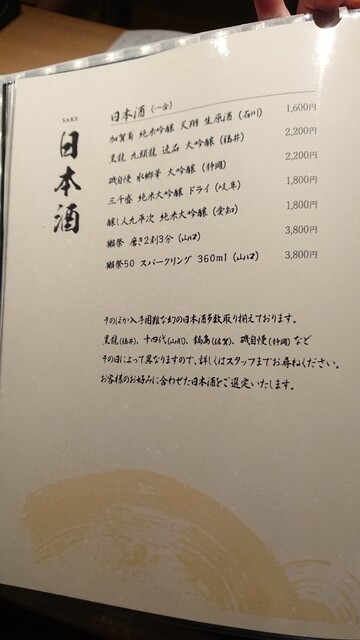 SAKE
日本酒
日本酒（一合）
加賀鳶 純米大吟醸 天翔 生原酒（石川） 1,600円
黒龍 九頭龍 逸品 大吟醸（福井） 2,200円
磯自慢 水響華 大吟醸（静岡） 2,200円
三千盛 純米大吟醸 ドライ（岐阜） 1,800円
醸し人九平次 純米大吟醸（愛知） 1,800円
獺祭 磨き2割3分（山口） 3,800円
獺祭50 スパークリング 360ml（山口） 3,800円
そのほか入手困難な幻の日本酒多数取り揃えております。
黒龍（福井）、十四代（山形）、鍋島（佐賀）、磯自慢（静岡）など
その日によって異なりますので、詳しくはスタッフまでお尋ねください。
お客様のお好みに合わせた日本酒をご選定いたします。